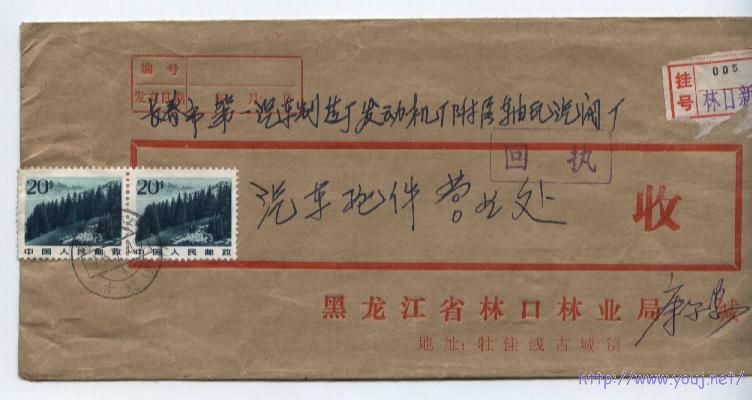 编号
发文日期 月
挂号 005 林口新
长春市第一汽车制造厂发动机厂附属轴瓦汽润厂
回执
20分 20分
汽车配件营业处 收
中国人民邮政 中国人民邮政
黑龙江省林口林业局 缄
地址：牡佳线古城镇
http://www.youj.net